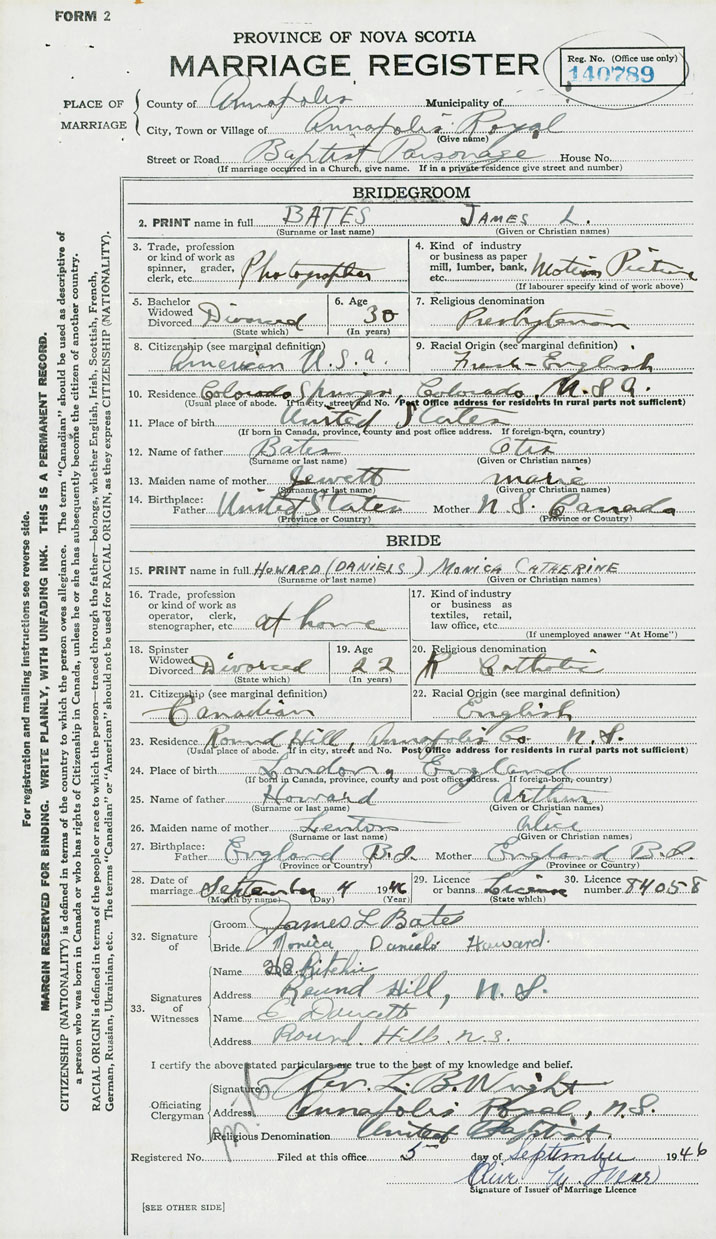 FORM 2
PROVINCE OF NOVA SCOTIA
MARRIAGE REGISTER
Reg. No. (Office use only)
140789
PLACE OF MARRIAGE
County of Annapolis Municipality of
City, Town or Village of Annapolis Royal
(Give name)
Street or Road Baptist Parsonage House No.
(If marriage occurred in a Church, give name. If in a private residence give street and number)
BRIDEGROOM
2. PRINT name in full BATES JAMES L.
(Surname or last name) (Given or Christian names)
3. Trade, profession or kind of work as spinner, grader, clerk, etc. Photographer
4. Kind of industry or business as paper mill, lumber, bank, etc. Motion Picture
(If labourer specify kind of work above)
5. Bachelor Widowed Divorced Divorced
(State which)
6. Age 30
(In years)
7. Religious denomination
Presbyterian
8. Citizenship (see marginal definition)
American U.S.A.
9. Racial Origin (see marginal definition)
French-English
10. Residence Colorado Springs, Colorado, U.S.A.
(Usual place of abode. If in city, street and No. Post Office address for residents in rural parts not sufficient)
11. Place of birth United States
(If born in Canada, province, county and post office address. If foreign-born, country)
12. Name of father Bates Otis
(Surname or last name) (Given or Christian names)
13. Maiden name of mother Jewett Marie
(Surname or last name) (Given or Christian names)
14. Birthplace: Father United States Mother N.S. Canada
(Province or Country) (Province or Country)
BRIDE
15. PRINT name in full HOWARD (DANIELS) MONICA CATHERINE
(Surname or last name) (Given or Christian names)
16. Trade, profession or kind of work as operator, clerk, stenographer, etc. at home
17. Kind of industry or business as textiles, retail, law office, etc.
(If unemployed answer "At Home")
18. Spinster Widowed Divorced Divorced
(State which)
19. Age 22
(In years)
20. Religious denomination
R Catholic
21. Citizenship (see marginal definition)
Canadian
22. Racial Origin (see marginal definition)
English
23. Residence Round Hill, Annapolis Co. N.S.
(Usual place of abode. If in city, street and No. Post Office address for residents in rural parts not sufficient)
24. Place of birth London, England
(If born in Canada, province, county and post office address. If foreign-born, country)
25. Name of father Howard Arthur
(Surname or last name) (Given or Christian names)
26. Maiden name of mother Lenton Alice
(Surname or last name) (Given or Christian names)
27. Birthplace: Father England B.I. Mother England B.I.
(Province or Country) (Province or Country)
28. Date of marriage September 4 1946
(Month by name) (Day) (Year)
29. Licence or banns License
(State which)
30. Licence number 84058
32. Signature of
Groom James L Bates
Bride Monica Daniels Howard.
33. Signatures of Witnesses
Name Ritchie
Address Round Hill, N.S.
Name E Doucett
Address Round Hill N.S.
I certify the above stated particulars are true to the best of my knowledge and belief.
Officiating Clergyman
Signature Rev. L. B. Wright
Address Annapolis Royal, N.S.
Religious Denomination United Baptist
Registered No. Filed at this office 5 day of September 1946
Signature of Issuer of Marriage Licence
[SEE OTHER SIDE]
For registration and mailing instructions see reverse side.
MARGIN RESERVED FOR BINDING. WRITE PLAINLY, WITH UNFADING INK. THIS IS A PERMANENT RECORD.
CITIZENSHIP (NATIONALITY) is defined in terms of the country to which the person owes allegiance. The term "Canadian" should be used as descriptive of
a person who was born in Canada or who has rights of Citizenship in Canada, unless he or she has subsequently become the citizen of another country.
RACIAL ORIGIN is defined in terms of the people or race to which the person—traced through the father—belongs, whether English, Irish, Scottish, French,
German, Russian, Ukrainian, etc. The terms "Canadian" or "American" should not be used for RACIAL ORIGIN, as they express CITIZENSHIP (NATIONALITY).